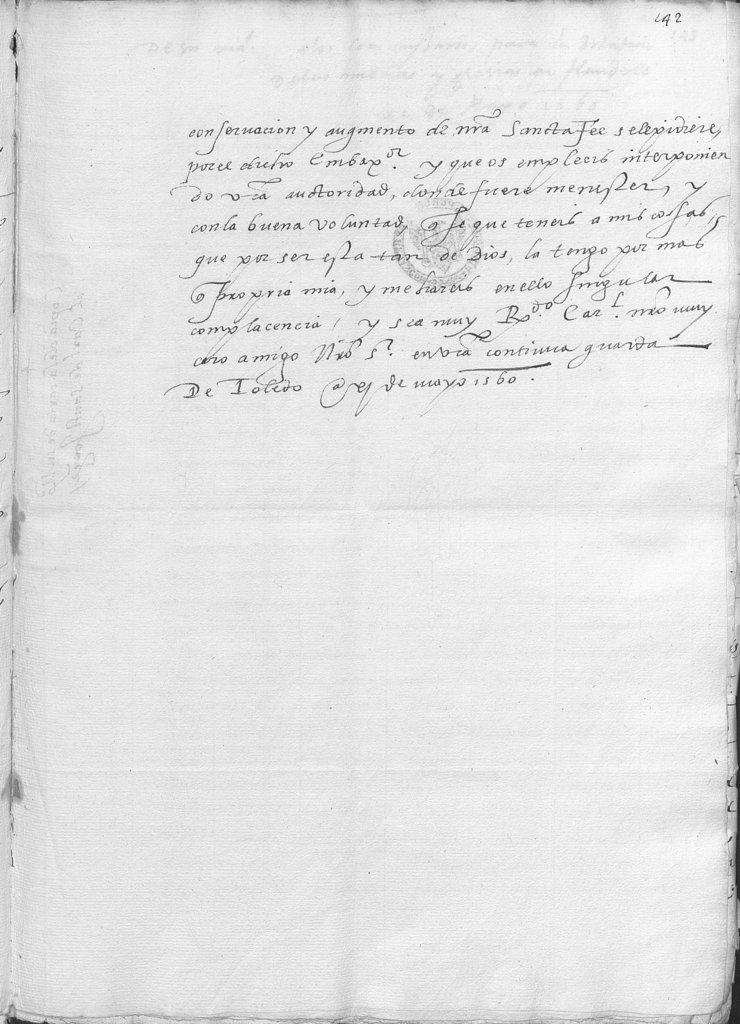 142
conseruacion y augmento de nrã Sancta Fee se le pidiere,
por el dicho Embaxor. y que os empleeis interponien
do vrã auctoridad, donde fuere menester, y
con la buena voluntad, q̃ se que teneis a mis cossas,
que por ser esta tan de Dios, la tengo por mas
q̃ propria mia, y me hareis en ello singular
complacencia, y sea muy Rdo. Carl. nrõ muy
caro amigo Nrõ sr. en vrã continua guarda
De Toledo a xj de mayo 1560.